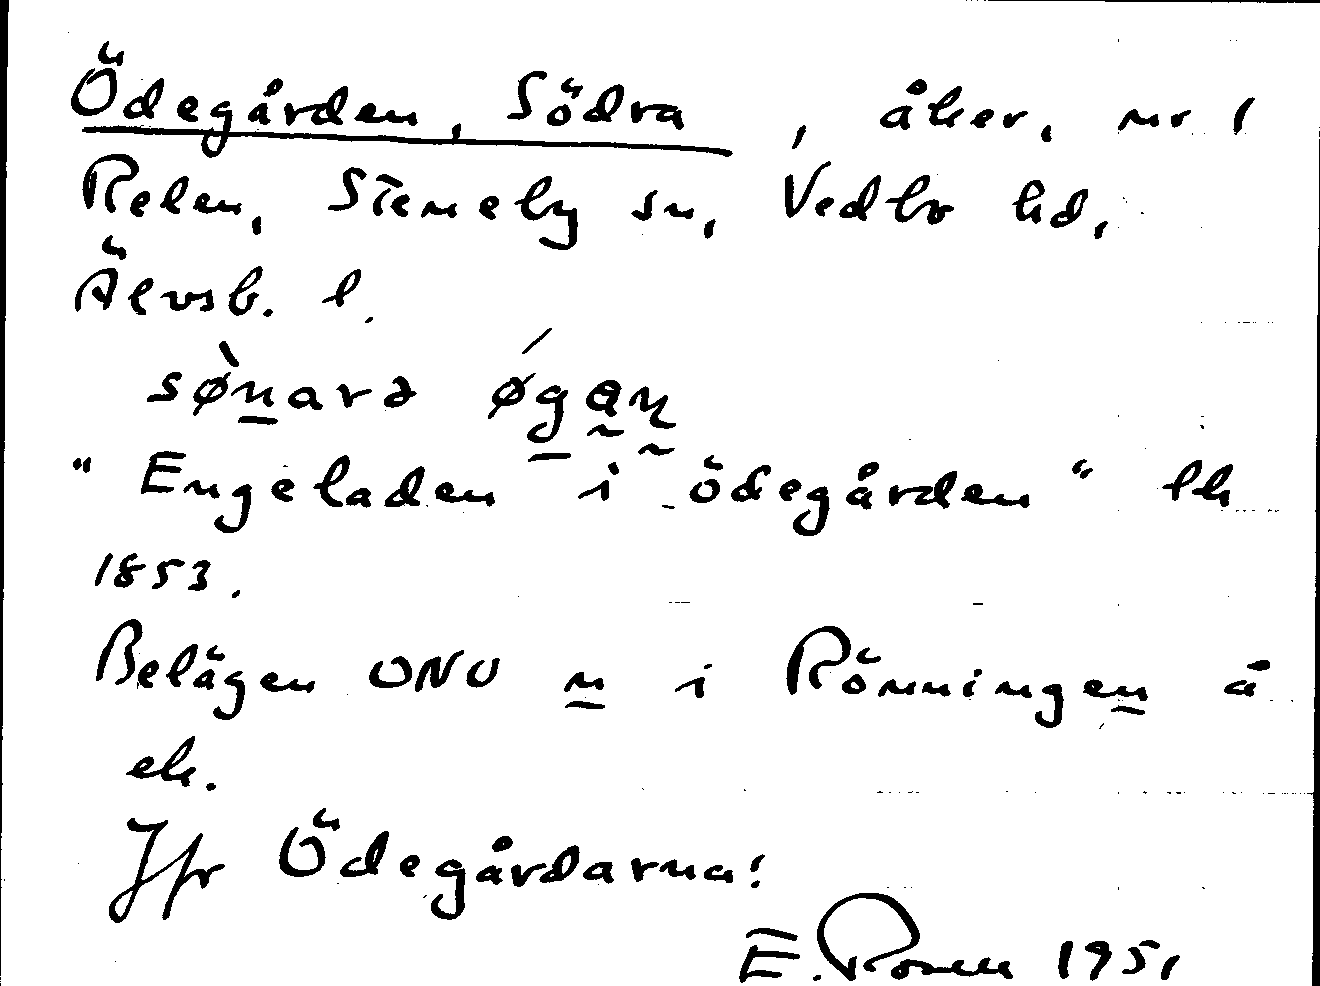 Ödegården, Södra, åker, nr 1
Relen, Steneby sn, Vedbo hd,
Älvsb. l.
sø̀narə øgan
"Engeladen i ödegården" lh
1853.
Belägen ONO n i Rönningen å
ek.
Jfr Ödegårdarna!
E. 1951